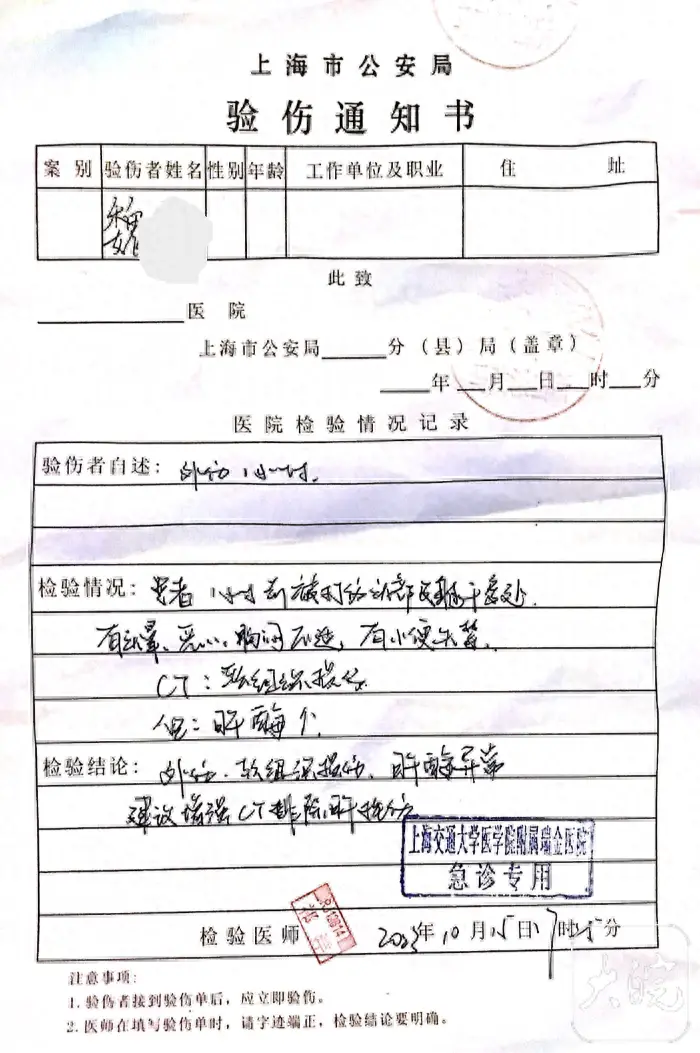 上海市公安局
验伤通知书
案别 验伤者姓名 性别 年龄 工作单位及职业 住址
此致
医院
上海市公安局 分（县）局（盖章）
年 月 日 时 分
医院检验情况记录
验伤者自述： 外伤 1小时.
检验情况： 患者 1小时前被打伤头部及躯干多处.
有头晕、恶心、胸闷不适，有小便失禁.
CT：软组织损伤
肝酶个
检验结论： 外伤. 软组织损伤. 肝酶异常
建议增强CT排除肝挫伤
上海交通大学医学院附属瑞金医院
急诊专用
检验医师 2023年10月15日 时 分
注意事项：
1. 验伤者接到验伤单后，应立即验伤。
2. 医师在填写验伤单时，请字迹端正，检验结论要明确。
大皖